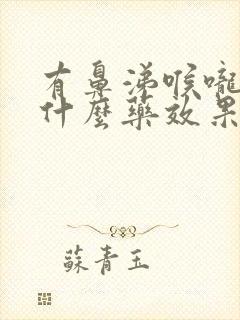 有鼻涕喉嚨
什麼藥效果
蘇青玉